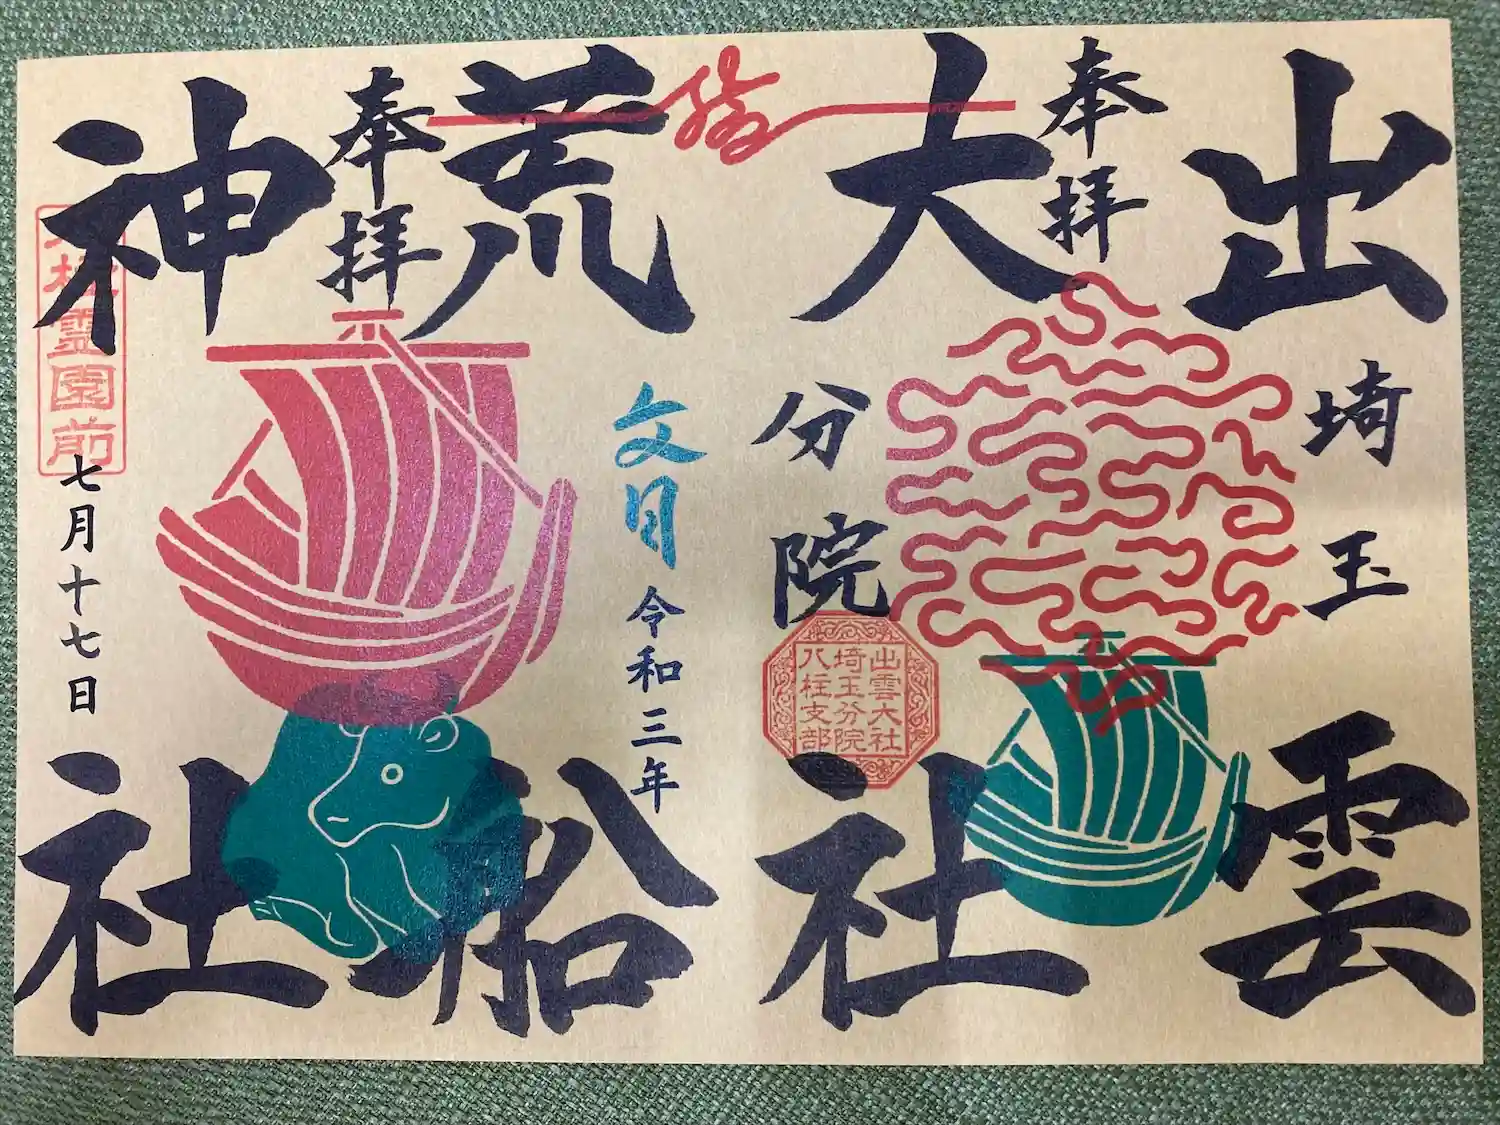 出雲
埼玉
奉拝
大社
分院
出雲大社
埼玉分院
八柱支部
荒船
文月
令和三年
奉拝
神社
八柱霊園前
七月十七日